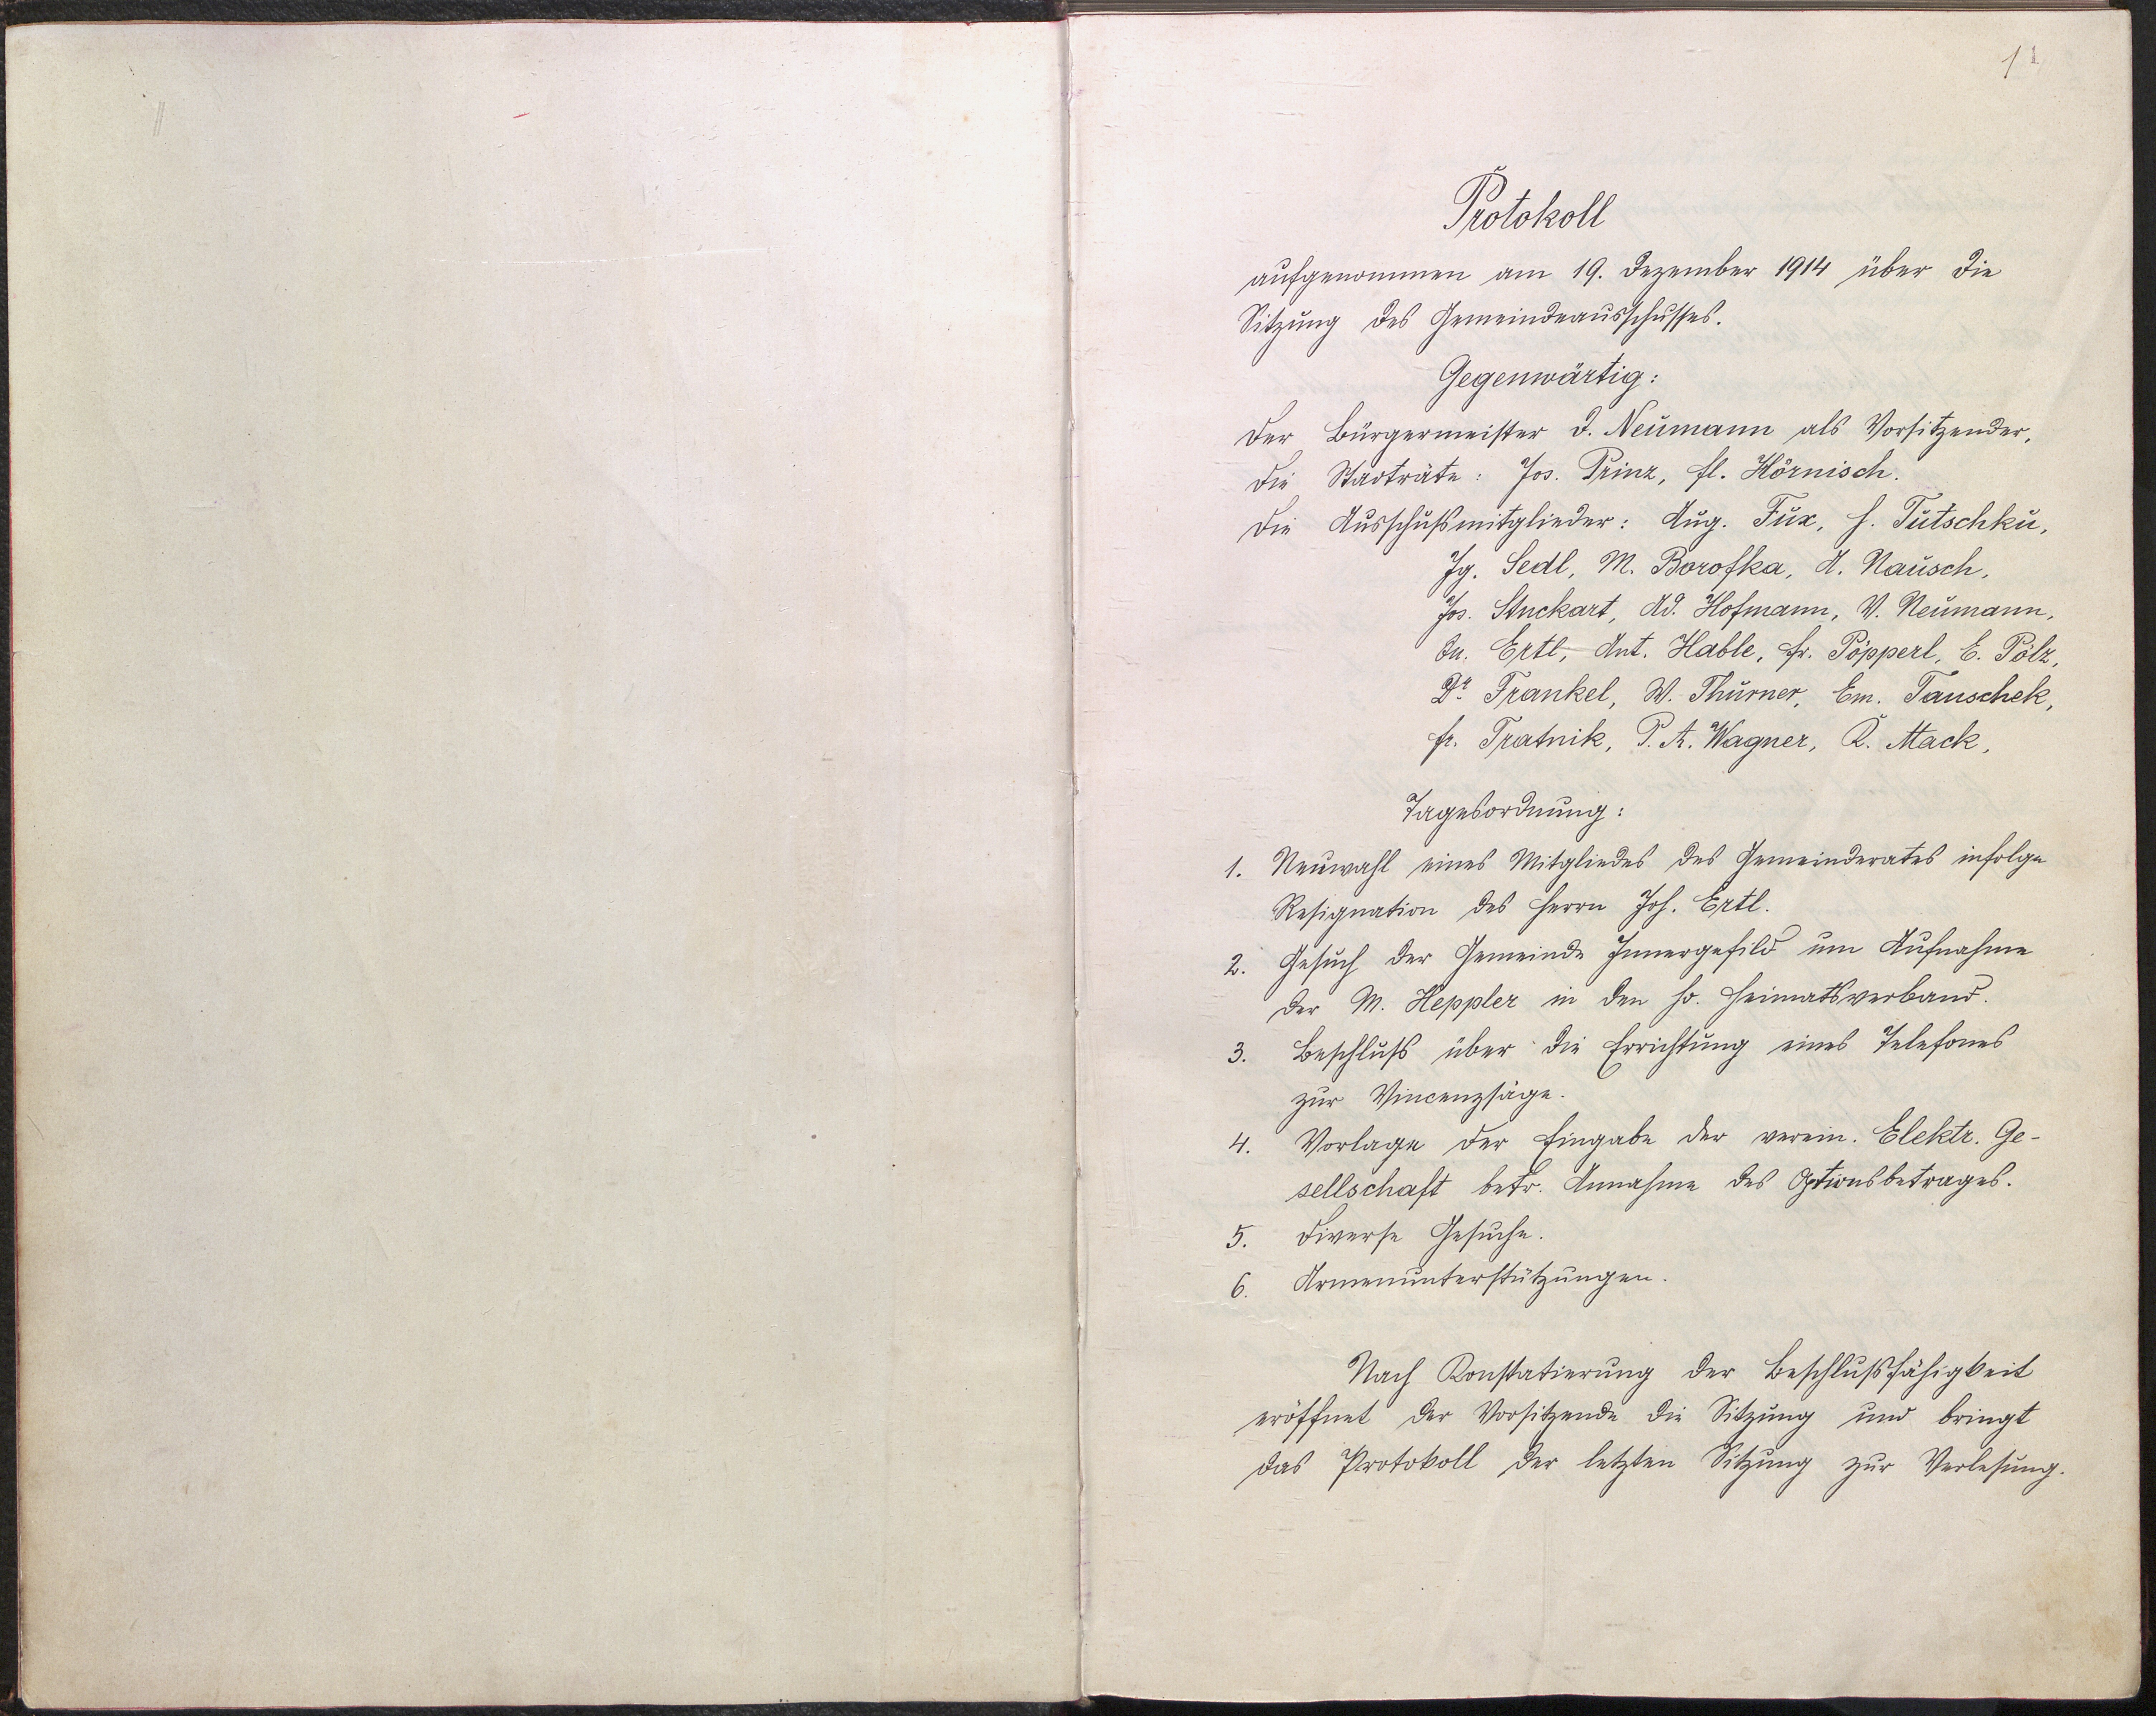 1
Protokoll
aufgenommen am 19. Dezember 1914 über die
Sitzung des Gemeindeausschusses.
Gegenwärtig:
Der Bürgermeister D. Neumann als Vorsitzender,
die Stadträte: Jos. Prinz, Fl. Hörnisch.
die Ausschußmitglieder: Aug. Fux, H. Tutschku,
Ig. Sedl, M. Borofka, A. Nausch,
Jos. Stuckart, Ad. Hofmann, V. Neumann,
Ertl, Ant. Hable, Fr. Pöpperl, E. Pölz,
Dr. Frankel, W. Thurner, Em. Tauschek,
Fr. Tratnik, P. A. Wagner, K. Mack,
Tagesordnung:
1. Neuwahl eines Mitgliedes des Gemeinderates infolge
Resignation des Herrn Joh. Ertl.
2. Gesuch der Gemeinde Innergefild um Aufnahme
der M. Heppler in den ho. Heimatsverband.
3. Beschluß über die Errichtung eines Telefones
zur Vincenzsäge.
4. Vorlage der Eingabe der verein. Elektr. Ge-
sellschaft betr. Annahme des Optionsbetrages.
5. Diverse Gesuche.
6. Armenunterstützungen.
Nach Konstatierung der Beschlußfähigkeit
eröffnet der Vorsitzende die Sitzung und bringt
das Protokoll der letzten Sitzung zur Verlesung.